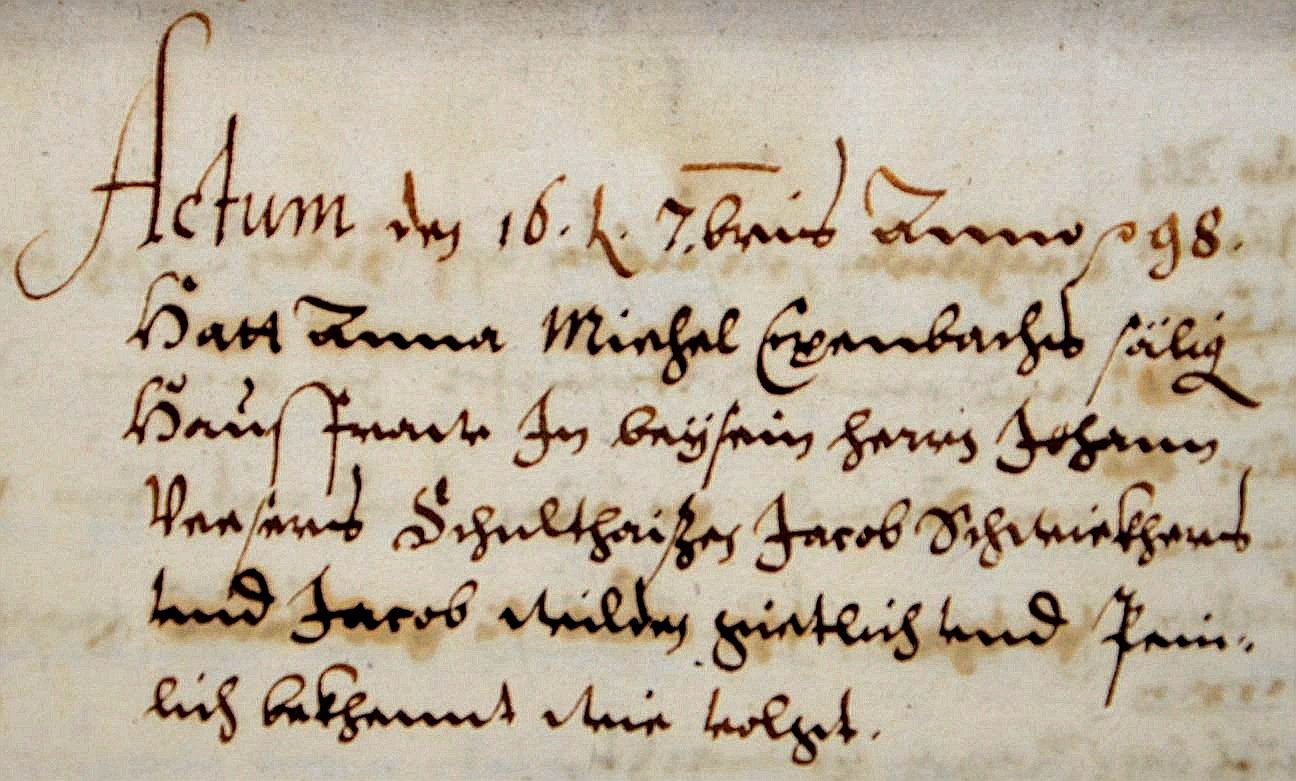 Actum den 16. t. 7.bris Anno p 98.
Hatt Anna Michel Expenbachs sälig
Hausfrauw In beysein herrn Johann
Veesers Schulthaißen Jacob Schwickhers
vnd Jacob Wilden gietlich vnd Pein-
lich bekhennt wie volgt.